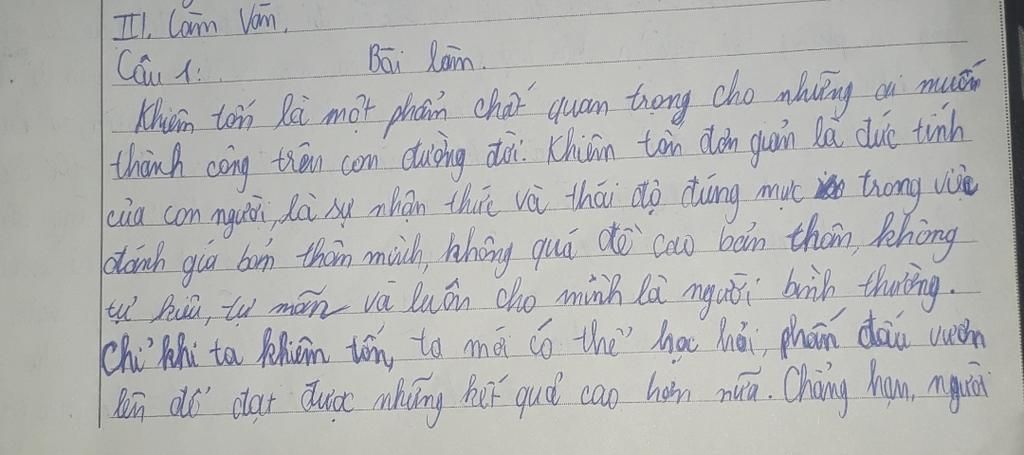 III. Làm Văn.
Câu 1: Bài làm.
Khiêm tốn là một phẩm chất quan trọng cho những ai muốn
thành công trên con đường đời. Khiêm tốn đơn giản là đức tính
của con người, là sự nhận thức và thái độ đúng mực trong việc
đánh giá bản thân mình, không quá đề cao bản thân, không
tự kiêu, tự mãn và luôn cho mình là người bình thường.
Chỉ khi ta khiêm tốn, ta mới có thể học hỏi, phấn đấu vươn
lên để đạt được những kết quả cao hơn nữa. Chẳng hạn, người